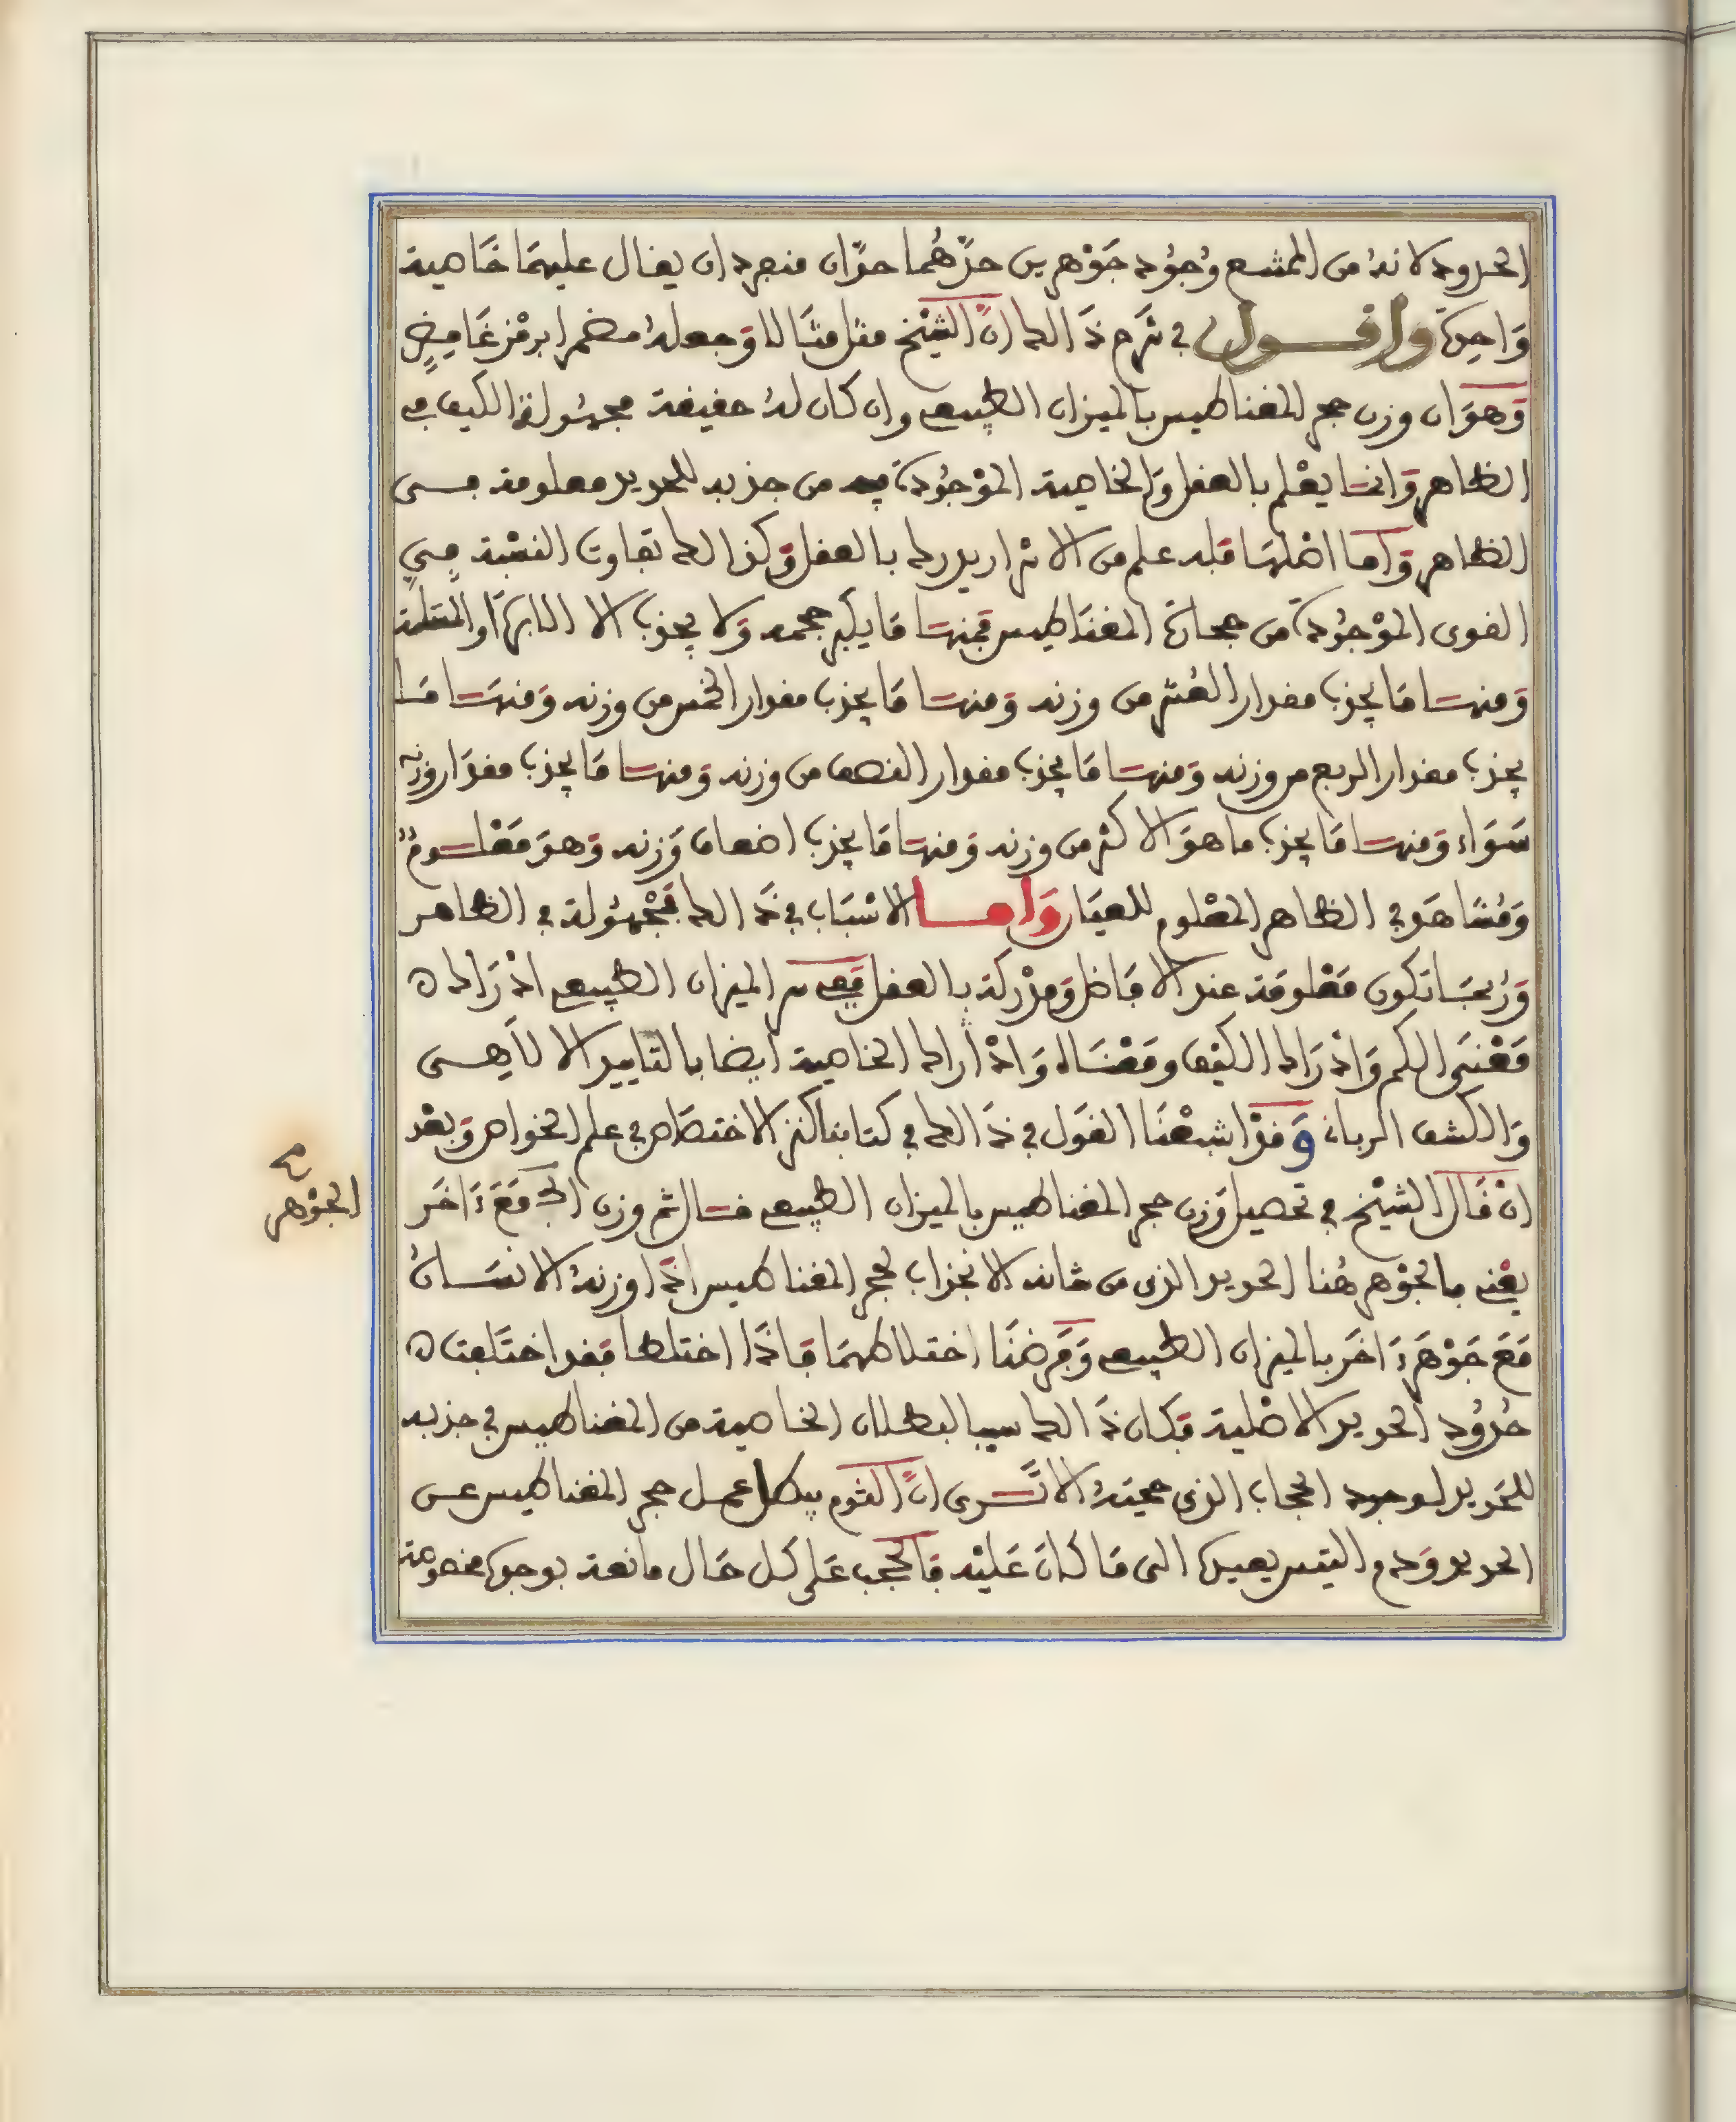 الحدود لانه من الممتنع وجود جوهرين حدهما حدان منفردان يقال عليهما خاصية
واحدة واقول في شرح ذالك ان الشيخ مثل مثالا وجعله مضمرا برمز غامض
وهو ان وزن حجر المغناطيس بالميزان الطبيعي وان كان له حقيقة مجهولة الكيف في
الظاهر وانما يعلم بالعقل والخاصية الموجودة فيه من جذبه للحديد معلومة في
الظاهر واما اصلها فلم علم من الاثر ادرك بالعقل وكذالك تفاوت النسبة في
القوى الموجودة من حجارة المغناطيس فمنها ما يكبر حجمه ولا يجذب الا الابرة او المسلة
ومنها ما يجذب مقدار العشر من وزنه ومنها ما يجذب مقدار الخمس من وزنه ومنها ما
يجذب مقدار الربع من وزنه ومنها ما يجذب مقدار النصف من وزنه ومنها ما يجذب مقدار وزنه
سواء ومنها ما يجذب ما هو الاكثر من وزنه ومنها ما يجذب اضعاف وزنه وهو معلوم
ومشاهد في الظاهر المعلوم للعيان واما الاسباب في ذالك فمجهولة في الظاهر
وربما تكون معلومة عند الافاضل ومدركة بالعقل ففي سر الميزان الطبيعي ادراك
معنى الكم وادراك الكيف ومعناه وادراك الخاصية ايضا بالتاييد الالاهي
والكشف الرباني وقد اشبعنا القول في ذالك في كتابنا كنز الاختصاص في علم الخواص وبعد
ان قال الشيخ في تحصيل وزن حجر المغناطيس بالميزان الطبيعي قال ثم وزن مع ءاخر
الجوهر
يعني بالجوهر هنا الحديد الذي من شانه الانجذاب لحجر المغناطيس اذا وزنه الانسان
مع جوهر ءاخر بالميزان الطبيعي وفرضنا اختلاطهما فاذا اختلطا فقد اختلفت
حدود الحديد الاصلية فكان ذالك سببا لبطلان الخاصية من المغناطيس في جذبه
للحديد لوجود الحجاب الذي حجبته الا ترى ان الثوم يبطل عمل حجر المغناطيس عن
الحديد ودم التيس يعيده الى ما كان عليه فالحجب على كل حال مانعة بوجوه مخصوصة